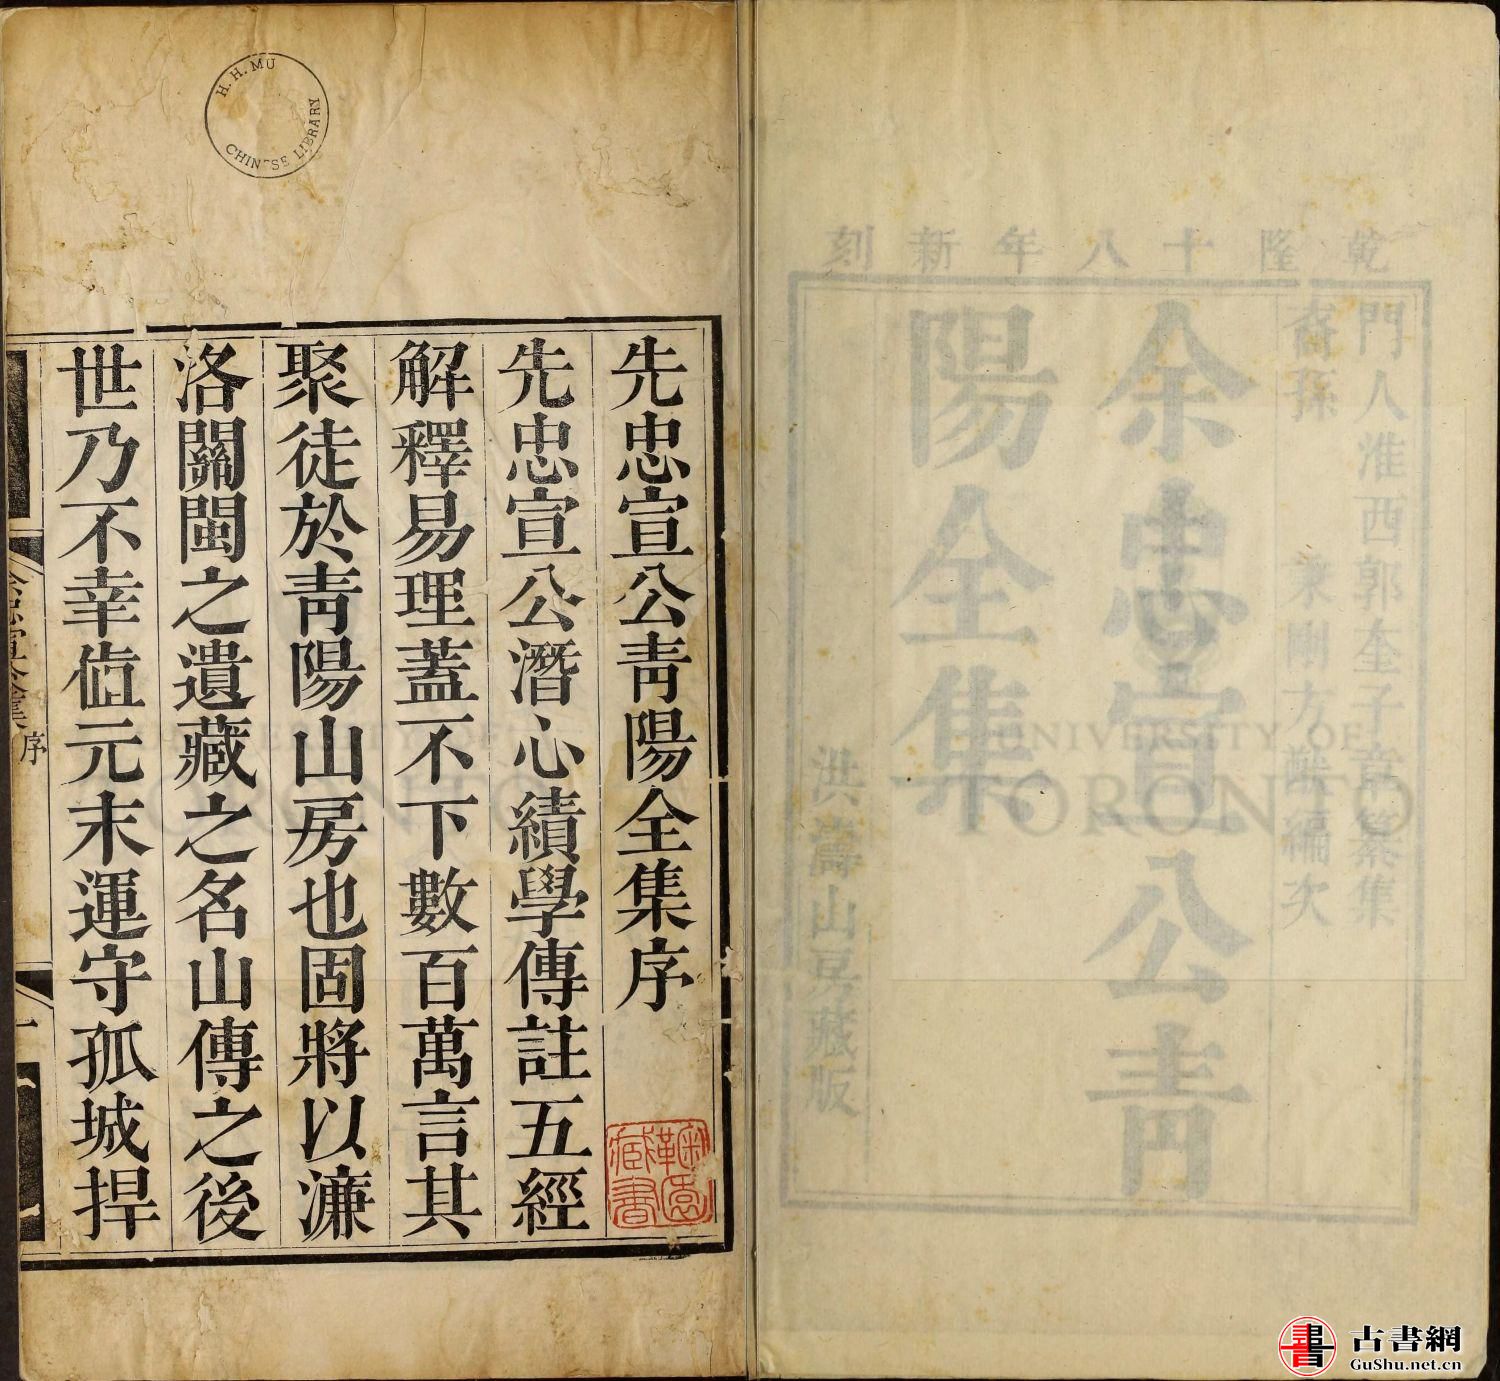 乾隆十八年新刻
門人淮西郭奎子章纂集
裔孫 秉剛方醊編次
余忠宣公青
陽全集
洪濤山房藏版
UNIVERSITY OF
TORONTO
H. H. MU
CHINESE LIBRARY
先忠宣公青陽全集序
先忠宣公潛心績學傳註五經
解釋易理蓋不下數百萬言其
聚徒於青陽山房也固將以濂
洛關閩之遺藏之名山傳之後
世乃不幸值元末運守孤城捍
余忠宣公集
序
一
藏書
古書網
GuShu.net.cn